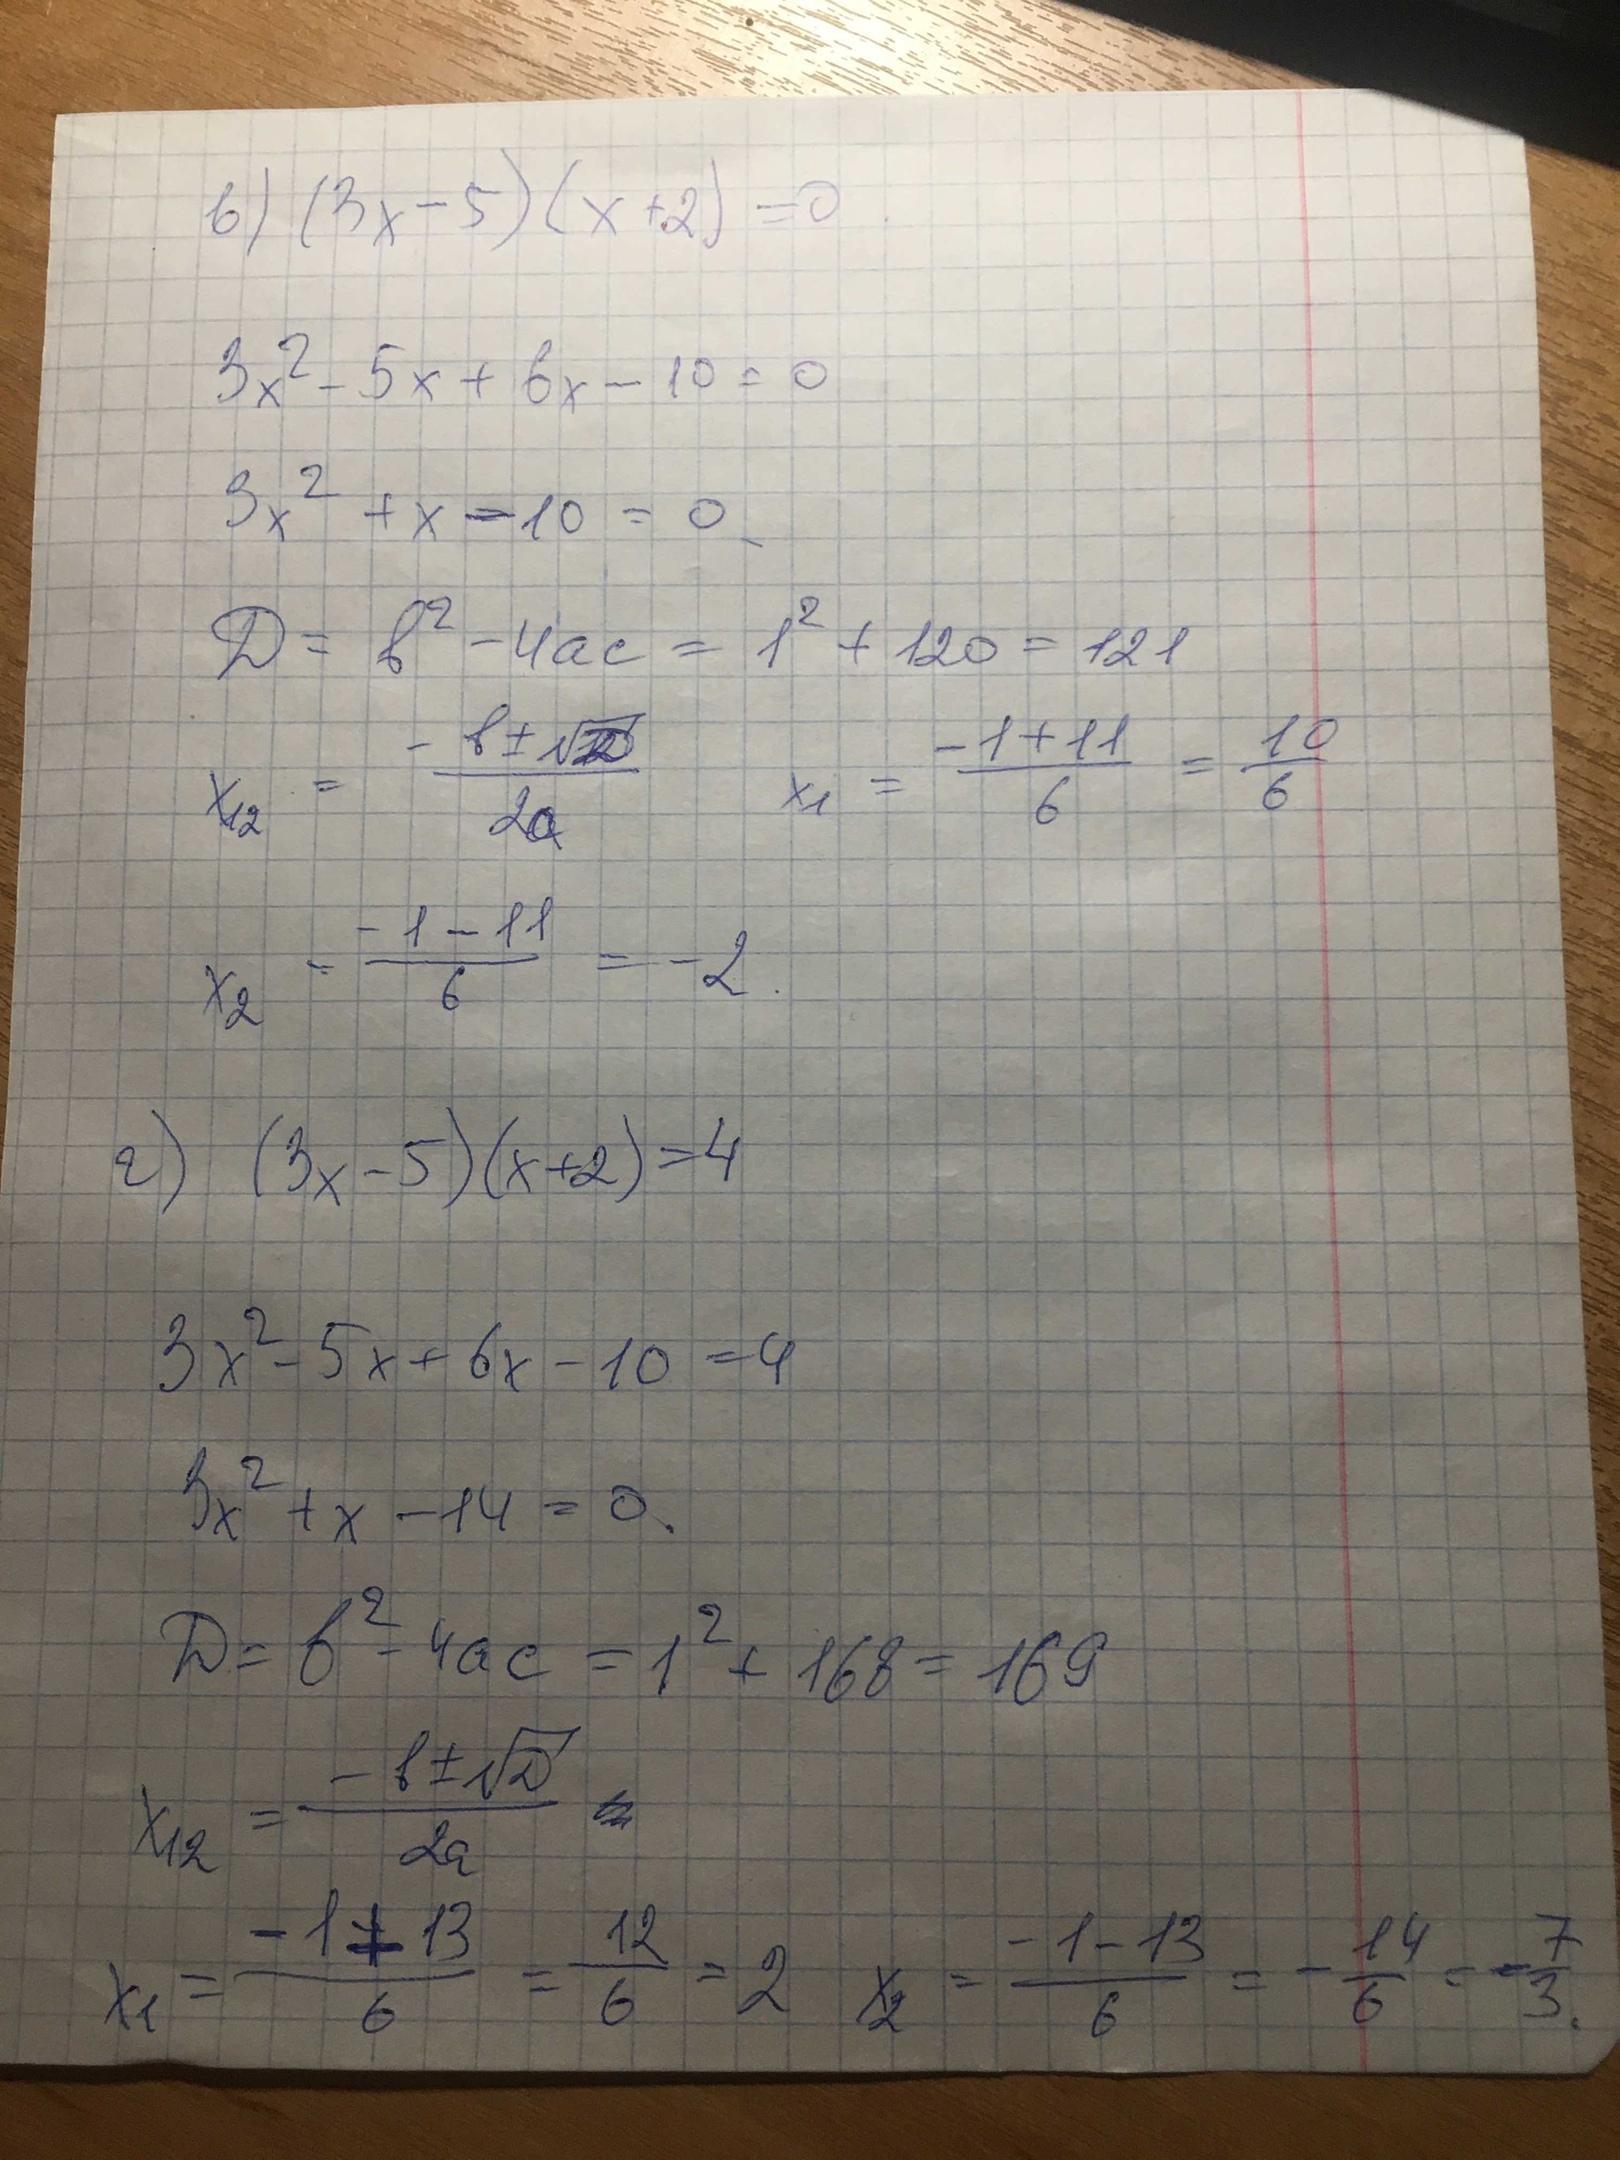 в) (3x-5)(x+2)=0.
3x²-5x+6x-10=0
3x²+x-10=0
D=b²-4ac=1²+120=121
x₁₂ = (-b±√D)/2a   x₁ = (-1+11)/6 = 10/6
x₂ = (-1-11)/6 = -2.
г) (3x-5)(x+2)=4
3x²-5x+6x-10=4
3x²+x-14=0.
D=b²-4ac=1²+168=169
x₁₂ = (-b±√D)/2a
x₁ = (-1+13)/6 = 12/6 = 2   x₂ = (-1-13)/6 = -14/6 = -7/3.